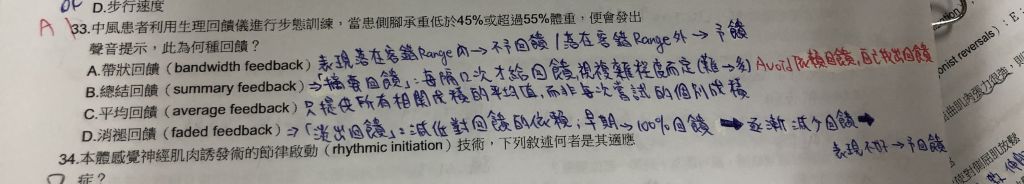 D.步行速度
A 33.中風患者利用生理回饋儀進行步態訓練,當患側腳承重低於45%或超過55%體重,便會發出
聲音提示,此為何種回饋?
A.帶狀回饋(bandwidth feedback)表現落在容錯Range內→不予回饋/落在容錯Range外→予回饋
B.總結回饋(summary feedback)⇒「摘要回饋」:每隔次才給回饋,視複雜程度而定(難→多) Avoid 回饋,自己找出回饋
C.平均回饋(average feedback)只提供所有相關成績的平均值,而非每次嘗試的個別成績
D.消褪回饋(faded feedback)⇒「淡出回饋」:減低對回饋的依賴;早期→100%回饋➡逐漸減少回饋➡
表現不好→予回饋
34.本體感覺神經肌肉誘發術的節律啟動(rhythmic initiation)技術,下列敘述何者是其適應
症?
onist reversals):E